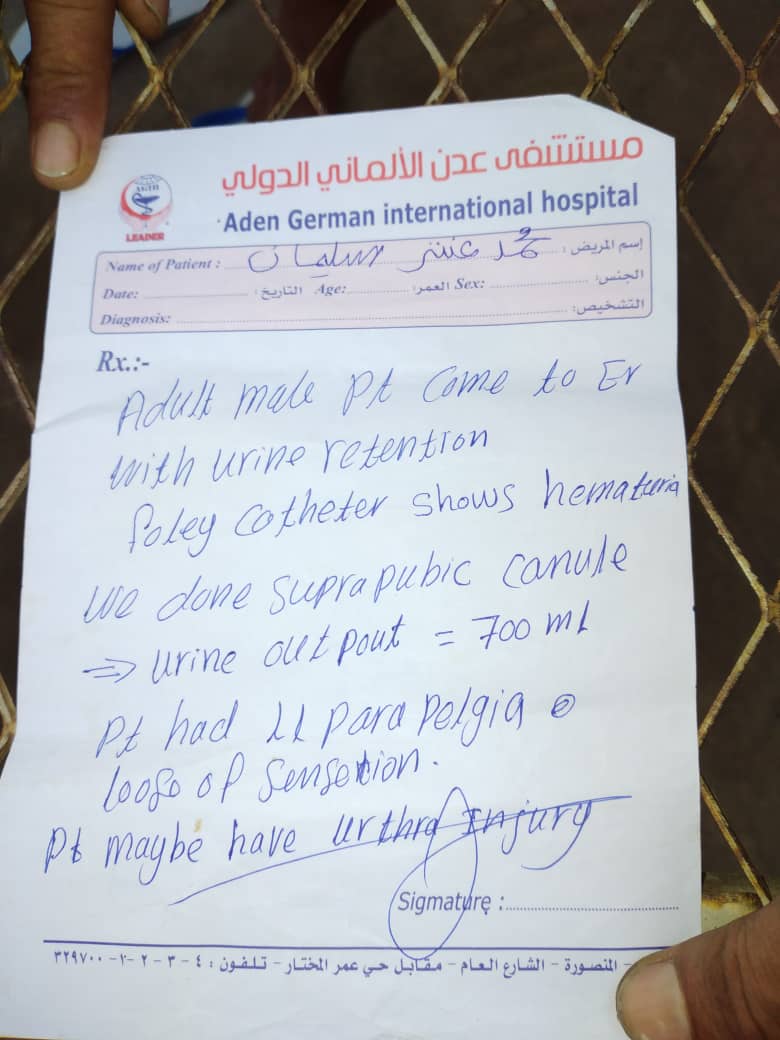 مستشفى عدن الألماني الدولي
AGIH
LEADER
Aden German international hospital
Name of Patient : محمد عنتر سليمان إسم المريض :
Date: التاريخ : Age: العمر: Sex: الجنس:
Diagnosis: التشخيص:
Rx.:-
Adult male Pt Come to Er
with urine retention
foley catheter shows hematuria
we done suprapubic canule
⇒ urine out pout = 700 ml
Pt had LL para pelgia
looso of sensetion.
Pt maybe have urthra Injury
Sigmature :
المنصورة - الشارع العام - مقابل حي عمر المختار - تلفون : ٤ - ٣ - ٢ - ١ - ٣٢٩٧٠٠